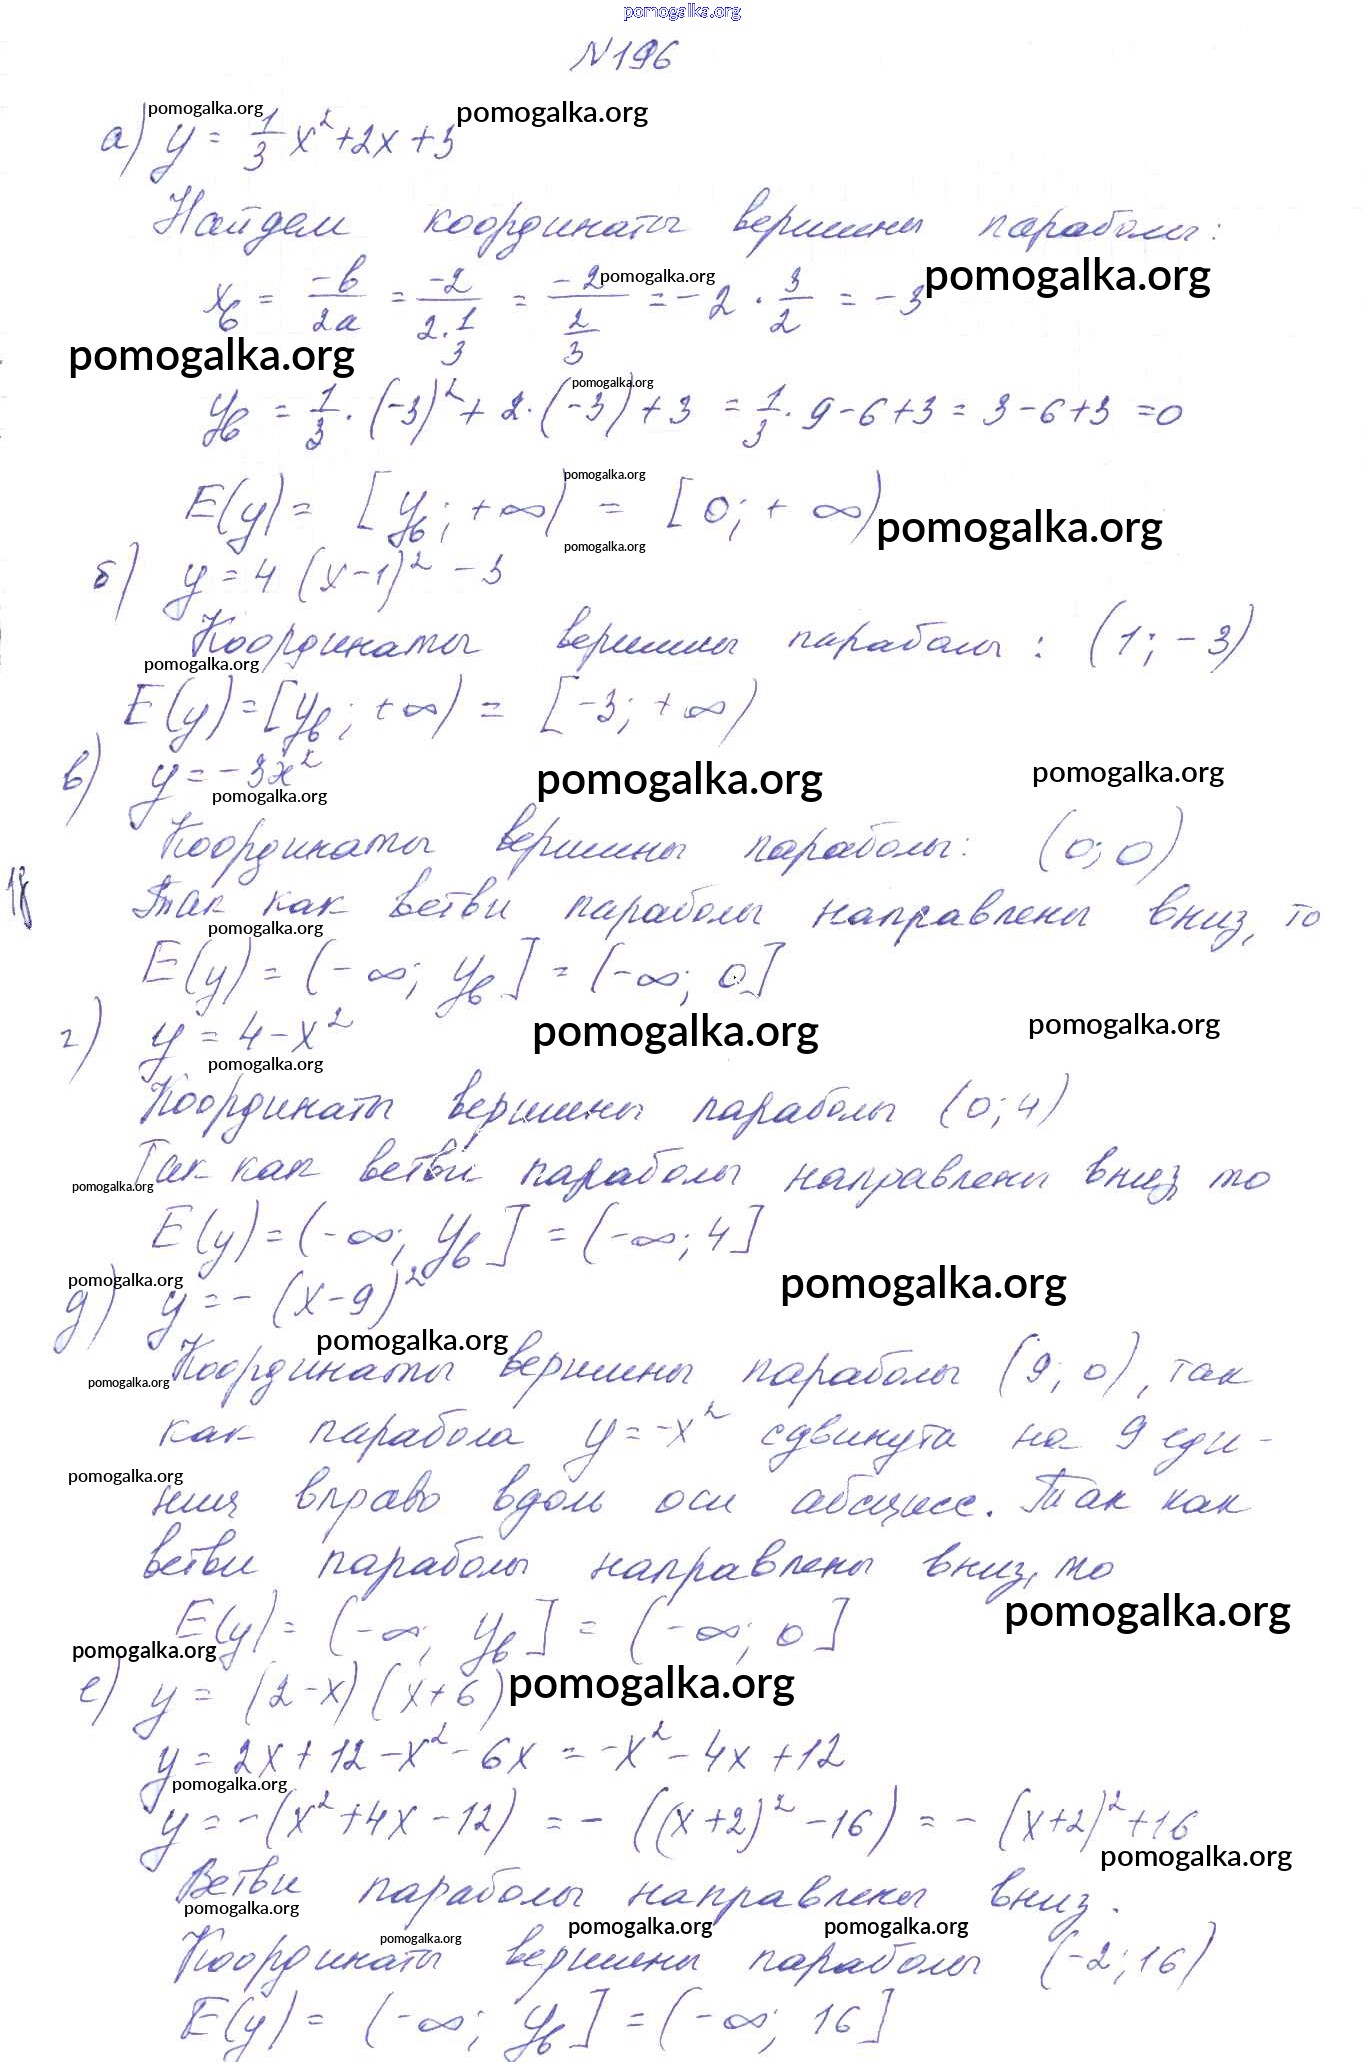 pomogalka.org
N196
pomogalka.org pomogalka.org
а) y = 1/3 x² + 2x + 3
Найдем координаты вершины параболы:
xв = -b/2a = -2/(2·1/3) = -2/(2/3) = -2 · 3/2 = -3
pomogalka.org pomogalka.org
pomogalka.org
pomogalka.org
yв = 1/3 · (-3)² + 2·(-3) + 3 = 1/3 · 9 - 6 + 3 = 3 - 6 + 3 = 0
pomogalka.org
E(y) = [yв; +∞) = [0; +∞)
pomogalka.org
pomogalka.org
б) y = 4 (x-1)² - 3
Координаты вершины параболы: (1; -3)
pomogalka.org
E(y) = [yв; +∞) = [-3; +∞)
в) y = -3x²
pomogalka.org pomogalka.org
pomogalka.org
Координаты вершины параболы: (0; 0)
18
Так как ветви параболы направлены вниз, то
pomogalka.org
E(y) = (-∞; yв] = (-∞; 0]
г) y = 4 - x²
pomogalka.org pomogalka.org
pomogalka.org
Координаты вершины параболы (0; 4)
Так как ветви параболы направлены вниз, то
pomogalka.org
E(y) = (-∞; yв] = (-∞; 4]
pomogalka.org pomogalka.org
д) y = - (x-9)²
pomogalka.org
Координаты вершины параболы (9; 0), так
pomogalka.org
как парабола y = -x² сдвинута на 9 еди-
pomogalka.org
ниц вправо вдоль оси абсцисс. Так как
ветви параболы направлены вниз, то
pomogalka.org
E(y) = (-∞; yв] = (-∞; 0]
pomogalka.org
е) y = (2-x)(x+6)
pomogalka.org
y = 2x + 12 - x² - 6x = -x² - 4x + 12
pomogalka.org
y = -(x² + 4x - 12) = - ((x+2)² - 16) = - (x+2)² + 16
pomogalka.org
Ветви параболы направлены вниз.
pomogalka.org
pomogalka.org pomogalka.org pomogalka.org
Координаты вершины параболы (-2; 16)
E(y) = (-∞; yв] = (-∞; 16]